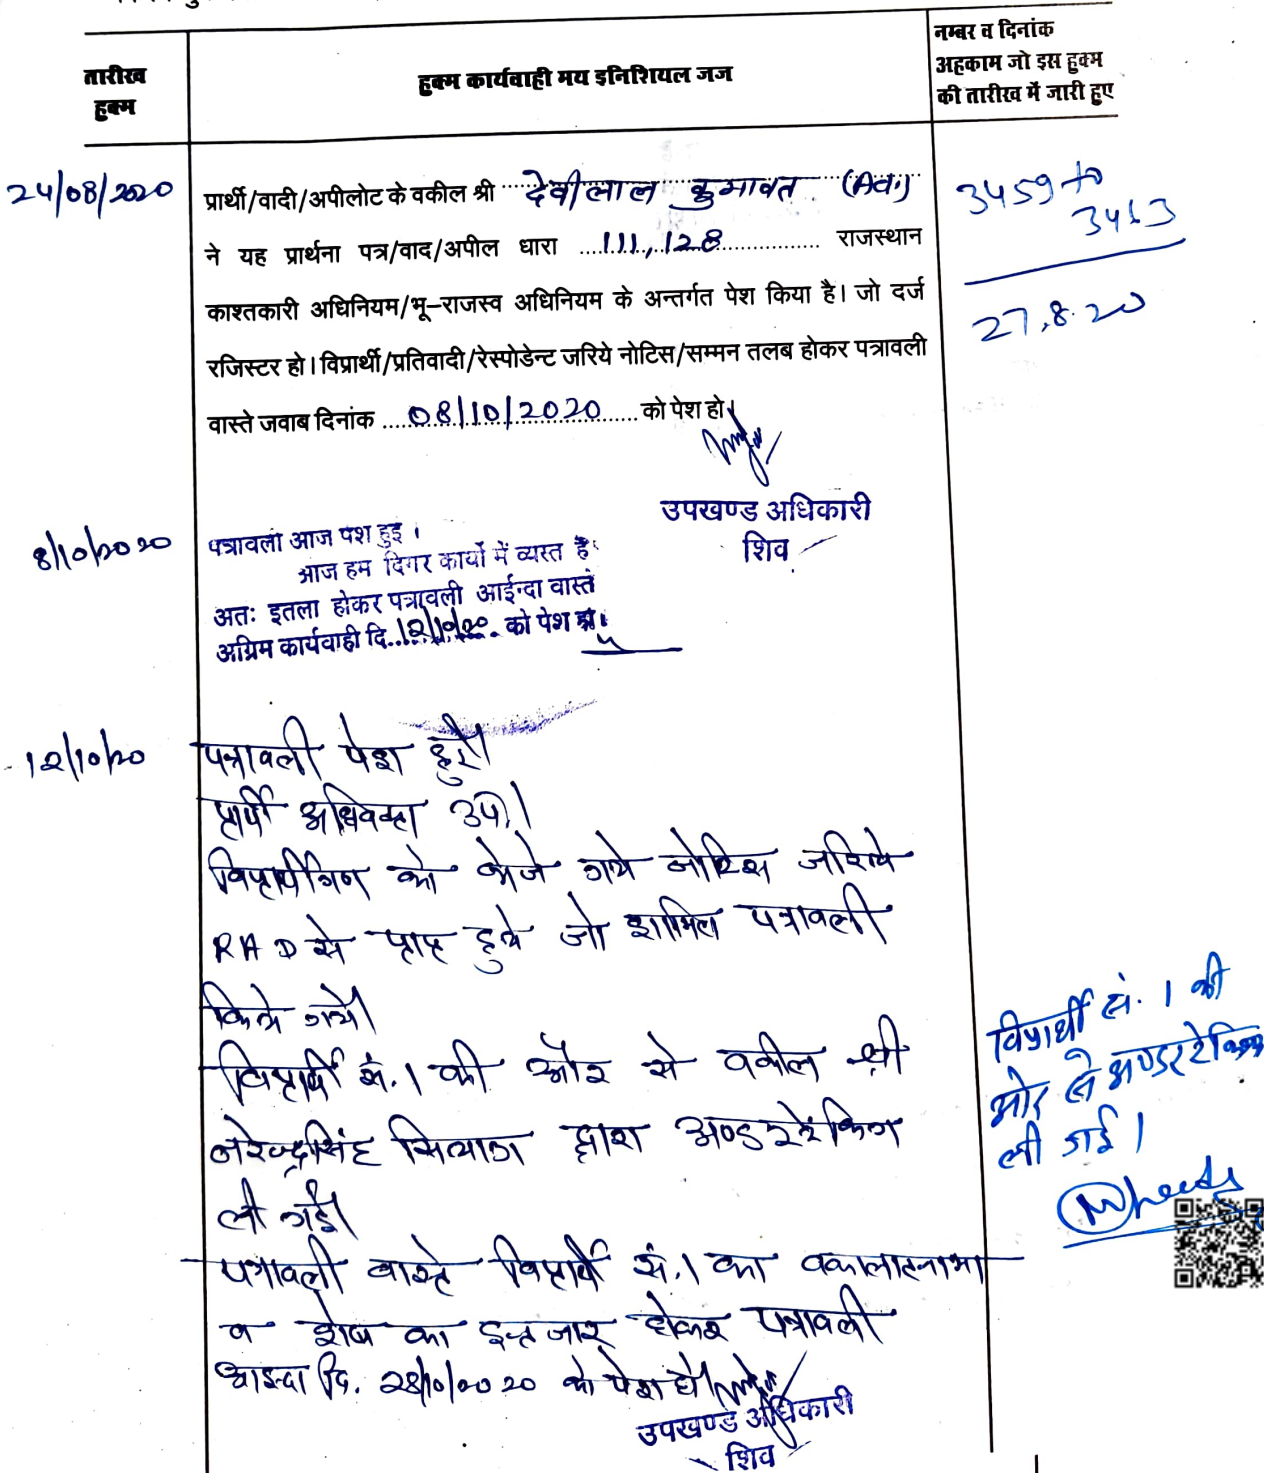 तारीख
हुक्म
हुक्म कार्यवाही मय इनिशियल जज
नम्बर व दिनांक
अहकाम जो इस हुक्म
की तारीख में जारी हुए
24/08/2020
प्रार्थी/वादी/अपीलोट के वकील श्री देवीलाल कुमावत (Adv.)
ने यह प्रार्थना पत्र/वाद/अपील धारा 111,128 राजस्थान
काश्तकारी अधिनियम/भू–राजस्व अधिनियम के अन्तर्गत पेश किया है। जो दर्ज
रजिस्टर हो। विप्रार्थी/प्रतिवादी/रेस्पोडेन्ट जरिये नोटिस/सम्मन तलब होकर पत्रावली
वास्ते जवाब दिनांक 08/10/2020 को पेश हो।
3459 to
3463
27.8.20
उपखण्ड अधिकारी
शिव
8/10/2020
पत्रावली आज पेश हुई ।
आज हम दिगर कार्यो में व्यस्त है
अतः इतला होकर पत्रावली आईन्दा वास्ते
अग्रिम कार्यवाही दि. 12/10/20 को पेश हो।
12/10/20
पत्रावली पेश हुई।
प्रार्थी अधिवक्ता उप.।
विप्रार्थीगण को भेजे गये नोटिस जरिये
RAD से प्राप्त हुये जो शामिल पत्रावली
किये गये।
विप्रार्थी सं. 1 की और से वकील श्री
नरेन्द्रसिंह सियाग द्वारा अण्डरटेकिंग
ली गई।
पत्रावली वास्ते विप्रार्थी सं. 1 का वकालतनामा
व शेष का इन्तजार होकर पत्रावली
आइन्दा दि. 28/10/2020 को पेश हो।
विप्रार्थी सं. 1 की
ओर से अण्डरटेकिंग
ली गई।
उपखण्ड अधिकारी
शिव